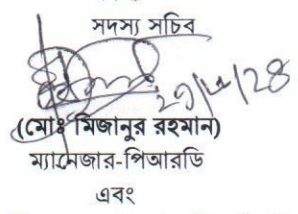 সদস্য সচিব
(মোঃ মিজানুর রহমান)
ম্যানেজার-পিআরডি
এবং